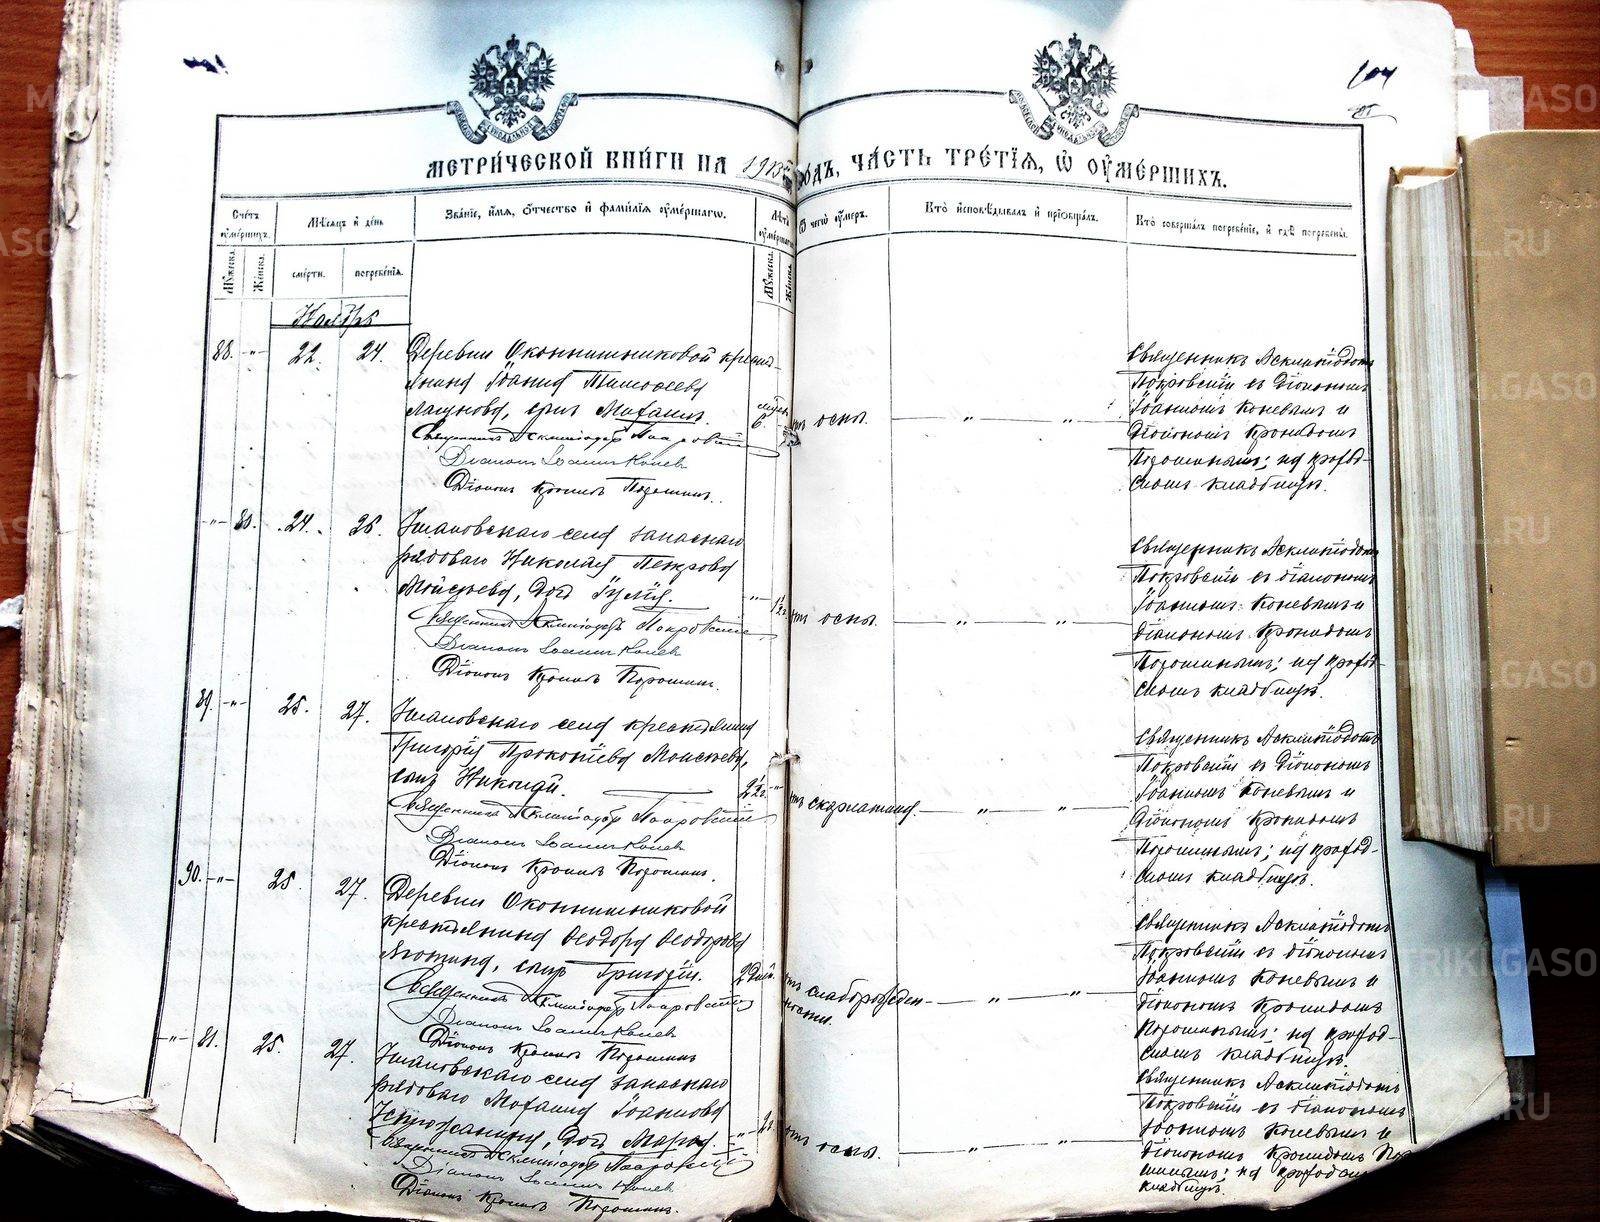 104
МЕТРИЧЕСКОЙ КНИГИ НА 1913й ГОДЪ, ЧАСТЬ ТРЕТІЯ, Ѿ ОУМЕРШИХЪ.
Счетъ оумершихъ.
Мѣсяцъ и день
Званіе, имя, отчество и фамилія оумершагѡ.
Лѣта оумершагѡ
Ѿ чегѡ оумеръ.
Кто исповѣдывалъ и пріобщалъ.
Кто совершалъ погребеніе, и гдѣ погребены.
Мужеска. Женска. смерти. погребенія.
Мужеска. Женска.
Ноябрь
88. -"- 22. 24. Деревни Оконишниковой крестья-
янина Іоанна Тимоѳеева
сынъ Михаилъ. 6. отъ оспы.
Священникъ Асклипіодотъ Покровскій
Діаконъ Іоаннъ Коневъ
Діаконъ Кронидъ Порошинъ.
Священникъ Асклипіодотъ
Покровскій съ діакономъ
Іоанномъ Коневымъ и
діакономъ Кронидомъ
Порошинымъ; на приход-
скомъ кладбищѣ.
-"- 80. 24. 26. села запаснаго
рядоваго Николая Петрова
Моисеева, дочь Іулія. отъ оспы.
Священникъ Асклипіодотъ Покровскій
Діаконъ Іоаннъ Коневъ
Діаконъ Кронидъ Порошинъ.
Священникъ Асклипіодотъ
Покровскій съ діакономъ
Іоанномъ Коневымъ и
діакономъ Кронидомъ
Порошинымъ; на приход-
скомъ кладбищѣ.
89. -"- 25. 27. села крестьянина
Григорія Прокопіева Моисеева,
сынъ Николай. отъ скарлатины.
Священникъ Асклипіодотъ Покровскій
Діаконъ Іоаннъ Коневъ
Діаконъ Кронидъ Порошинъ.
Священникъ Асклипіодотъ
Покровскій съ діакономъ
Іоанномъ Коневымъ и
діакономъ Кронидомъ
Порошинымъ; на приход-
скомъ кладбищѣ.
90. -"- 25. 27. Деревни Оконишниковой
крестьянина Ѳеодора Ѳеодорова
сынъ Григорій. 2 дней. отъ слаборожден-
ности.
Священникъ Асклипіодотъ Покровскій
Діаконъ Іоаннъ Коневъ
Діаконъ Кронидъ Порошинъ
Священникъ Асклипіодотъ
Покровскій съ діакономъ
Іоанномъ Коневымъ и
діакономъ Кронидомъ
Порошинымъ; на приход-
скомъ кладбищѣ.
-"- 81. 25. 27. села запаснаго
рядоваго Михаила Іоаннова
дочь Марія. -"- 2 г. отъ оспы.
Священникъ Асклипіодотъ Покровскій
Діаконъ Іоаннъ Коневъ
Діаконъ Кронидъ Порошинъ.
Священникъ Асклипіодотъ
Покровскій съ діакономъ
Іоанномъ Коневымъ и
діакономъ Кронидомъ Поро-
шинымъ; на приходскомъ
кладбищѣ.